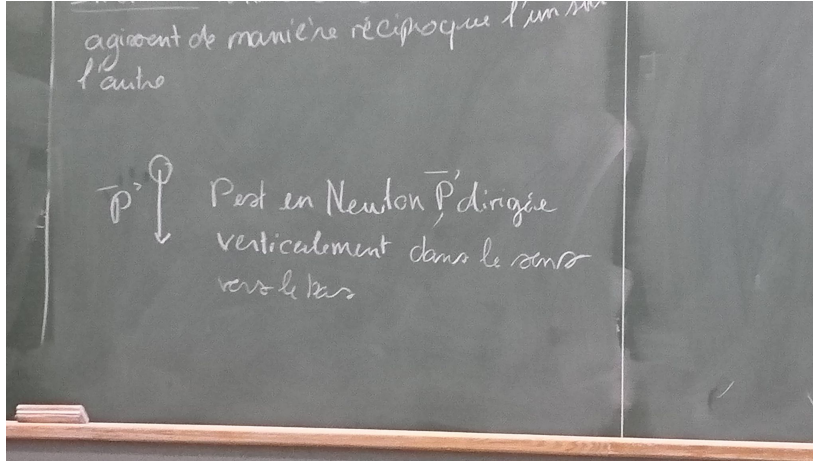 agissent de manière réciproque l'un sur
l'autre
P P est en Newton P dirigée
verticalement dans le sens
vers le bas